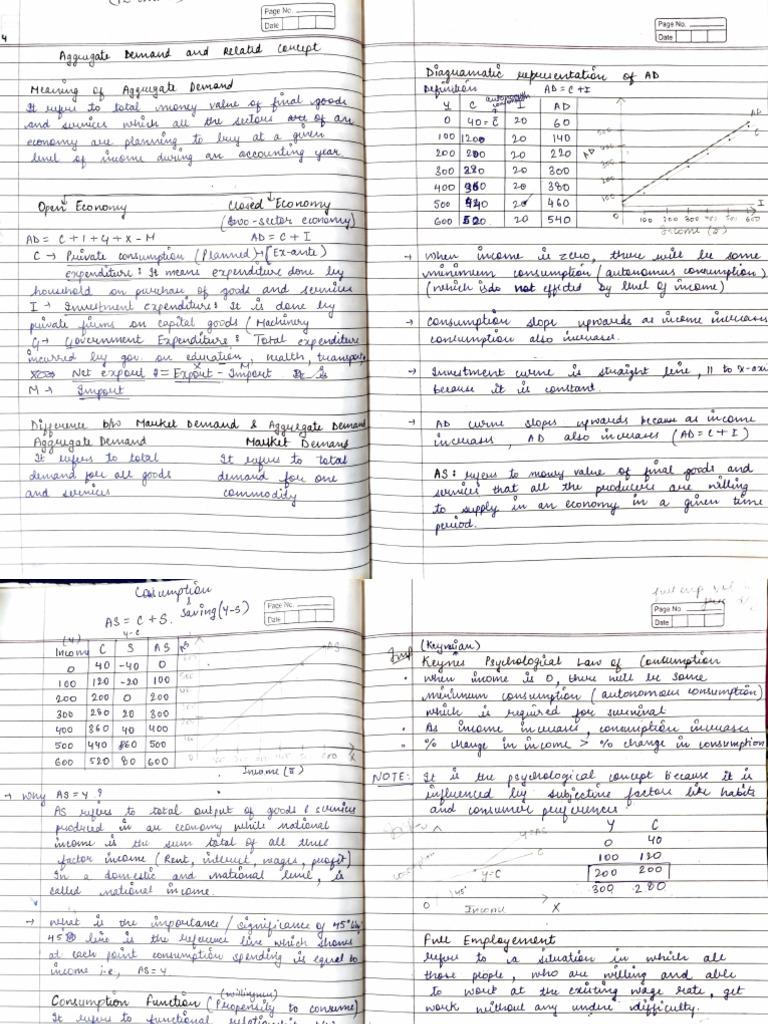 Page No.
Date
Aggregate Demand and Related Concept
Meaning of Aggregate Demand
It refers to total money value of final goods
and services which all the sectors are of an
economy are planning to buy at a given
level of income during an accounting year.
Open Economy Closed Economy
(two-sector economy)
AD = C + I + G + X - M AD = C + I
C → Private consumption (Planned) (Ex-ante)
expenditure: It means expenditure done by
household on purchase of goods and services
I → Investment expenditure: It is done by
private firms on capital goods (Machinery
G → Government Expenditure: Total expenditure
incurred by gov. on education, health, transport,
Net export = Export - Import. It is
M → Import
Difference b/w Market Demand & Aggregate Demand
Aggregate Demand Market Demand
It refers to total It refers to total
demand for all goods demand for one
and services commodity
Page No.
Date
Diagramatic representation of AD
Definition AD = C + I
autonomous consumption
Y C I AD
0 40 = C̄ 20 60
100 120 20 140
200 200 20 220
300 280 20 300
400 360 20 380
500 440 20 460
600 520 20 540
AD
AD
I
100 200 300 400 500 600
Income (Y)
→ When income is zero, there will be some
minimum consumption (autonomus consumption)
(which is do not effected by level of income)
→ Consumption slope upwards as income increases
consumption also increases.
→ Investment curve is straight line, || to x-axi
because it is constant.
→ AD curve slopes upwards because as income
increases, AD also increases (AD = C + I)
AS: refers to money value of final goods and
services that all the producers are willing
to supply in an economy in a given time
period.
Consumption
&
AS = C + S. Saving (Y-S)
Y-C
Page No.
Date
(Y)
Income C S AS
0 40 -40 0
100 120 -20 100
200 200 0 200
300 280 20 300
400 360 40 400
500 440 60 500
600 520 80 600
AS
AS
X
Income (Y)
→ Why AS = Y ?
AS refers to total output of goods & services
produced in an economy while national
income is the sum total of all these
factor income (Rent, interest, wages, profit)
In a domestic and national level, is
called national income.
→ What is the importance / significance of 45°
45° line is the reference line which shows
at each point consumption spending is equal to
income i.e, AS = Y
(willingness)
Consumption Function (Propensity to consume)
It refers to functional relationship
Page No.
Date
Imp (Keynsian)
Keynes Psychological Law of Consumption
• When income is 0, there will be some
minimum consumption (autonomous consumption)
which is required for survival
• As income increases, consumption increases
• % change in income > % change in consumption
NOTE: It is the psychological concept because it is
influenced by subjective factors like habits
and consumer preferences
Y C
0 40
100 130
200 200
300 280
Consumption
Y=AS
C
Y=C
45°
0 Income X
Full Employement
refers to a situation in which all
those people, who are willing and able
to work at the existing wage rate, get
work without any undue difficulty.